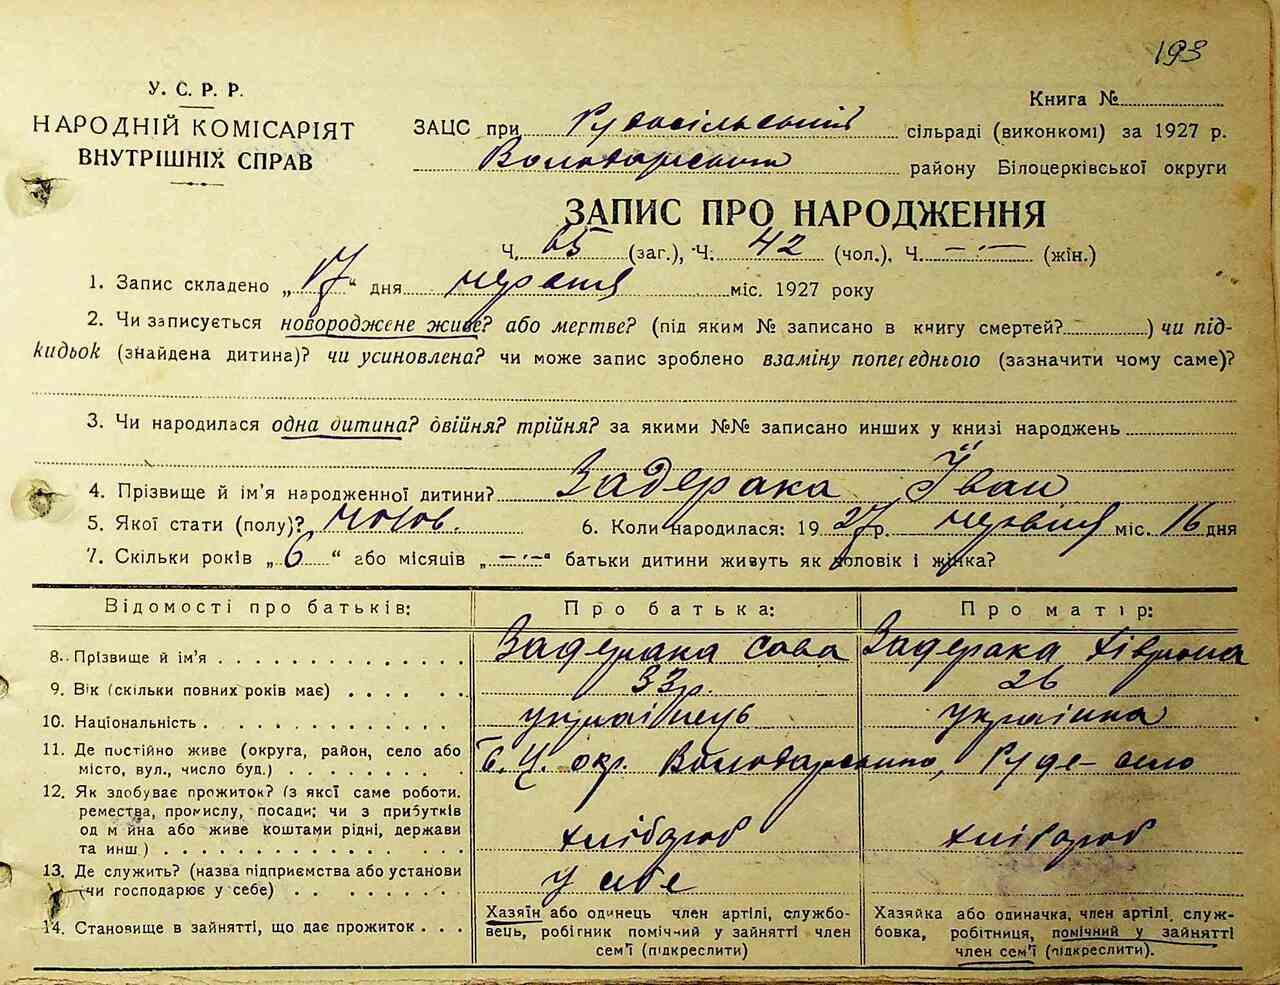 193
У. С. Р. Р.
НАРОДНІЙ КОМІСАРІЯТ
ВНУТРІШНІХ СПРАВ
Книга №
ЗАЦС при Рудосільський сільраді (виконкомі) за 1927 р.
Володарського району Білоцерківської округи
ЗАПИС ПРО НАРОДЖЕННЯ
Ч. 65 (заг.), Ч. 42 (чол.), Ч. — (жін.)
1. Запис складено „17“ дня червня міс. 1927 року
2. Чи записується новороджене живе? або мертве? (під яким № записано в книгу смертей?) чи під-
кидьок (знайдена дитина)? чи усиновлена? чи може запис зроблено взаміну попереднього (зазначити чому саме)?
3. Чи народилася одна дитина? двійня? трійня? за якими №№ записано инших у книзі народжень
4. Прізвище й ім'я народженної дитини? Задерака Іван
5. Якої стати (полу)? чолов. 6. Коли народилася: 1927 р. червня міс. 16 дня
7. Скільки років „6“ або місяців „—“ батьки дитини живуть як чоловік і жінка?
Відомості про батьків: Про батька: Про матір:
8. Прізвище й ім'я Задерака Сава Задерака Хівроня
9. Вік (скільки повних років має) 33р. 26
10. Національність українець українка
11. Де постійно живе (округа, район, село або
місто, вул., число буд.) Б. Ц. окр. Володарського, Руде-село
12. Як здобуває прожиток? (з якої саме роботи.
ремества, промислу, посади; чи з прибутків
од майна або живе коштами рідні, держави
та инш) хлібороб хлібороб
13. Де служить? (назва підприємства або установи
чи господарює у себе) у себе
14. Становище в зайнятті, що дає прожиток
Хазяїн або одинець член артілі, службо-
вець, робігник помічний у зайнятті член
сем'ї (підкреслити)
Хазяйка або одиначка, член артілі, служ-
бовка, робітниця, помічний у зайнятті
член сем'ї (підкреслити).